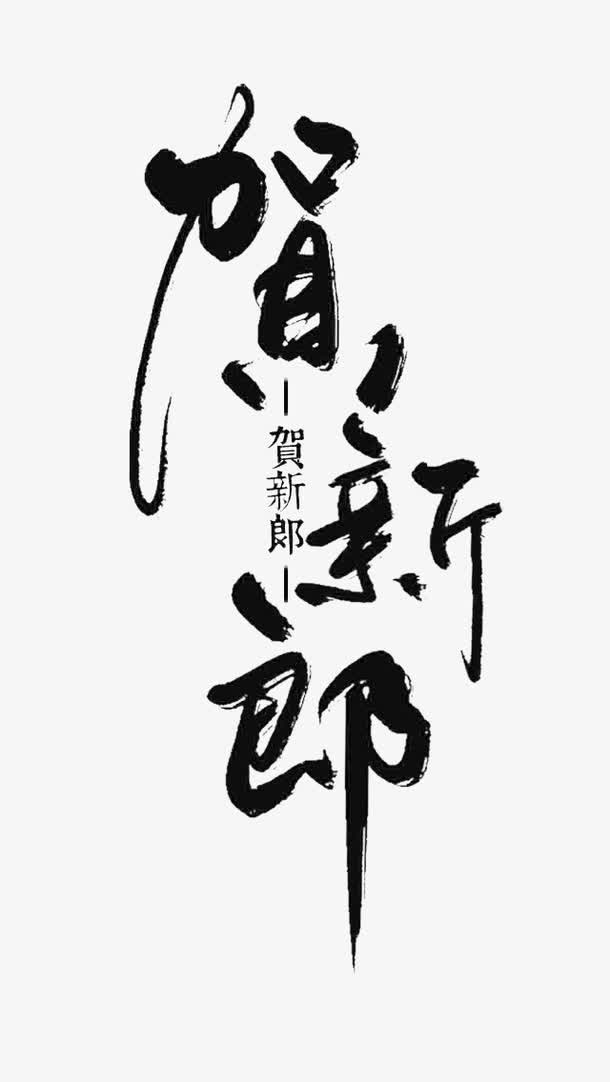 賀新郎
賀新郎